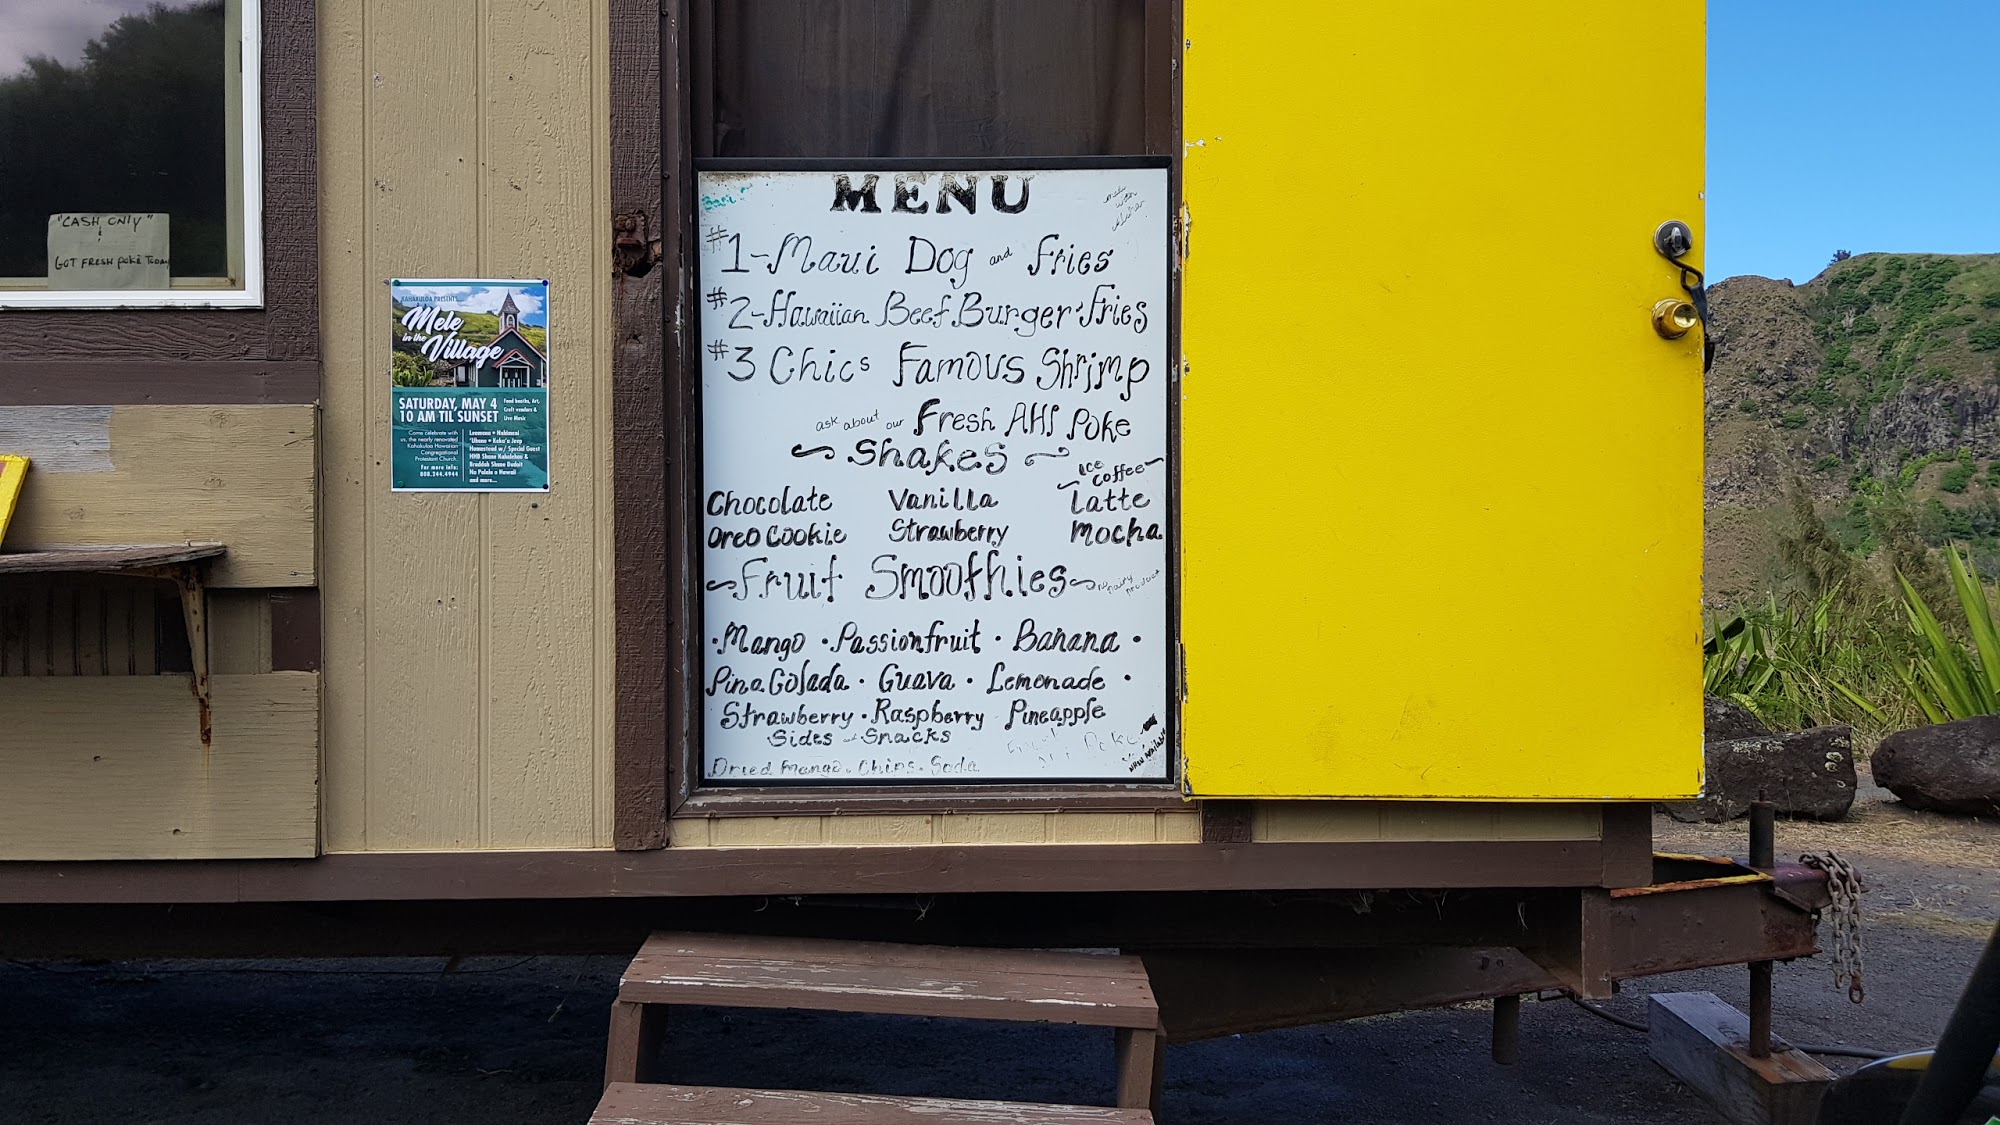 "CASH ONLY"
&
GOT FRESH POKE TODAY
KAHAKULOA PRESENTS...
Mele
in the
Village
SATURDAY, MAY 4
10 AM TIL SUNSET
Food booths, Art,
Craft vendors &
Live Music
Come celebrate with
us, the nearly renovated
Kahakuloa Hawaiian
Congregational
Protestant Church.
For more info:
808.244.4944
Homestead w/ Special Guest
and more...
MENU
#1-Maui Dog and Fries
#2-Hawaiian Beef Burger Fries
#3 Chics Famous Shrimp
ask about our Fresh AHI Poke
Shakes
Ice
Coffee
Chocolate Vanilla Latte
Oreo Cookie Strawberry Mocha
Fruit Smoothies
no dairy
product
• Mango • Passionfruit • Banana •
Pina Colada • Guava • Lemonade •
Strawberry • Raspberry Pineapple
Sides and Snacks
Dried Mango • Chips • Soda
Poke